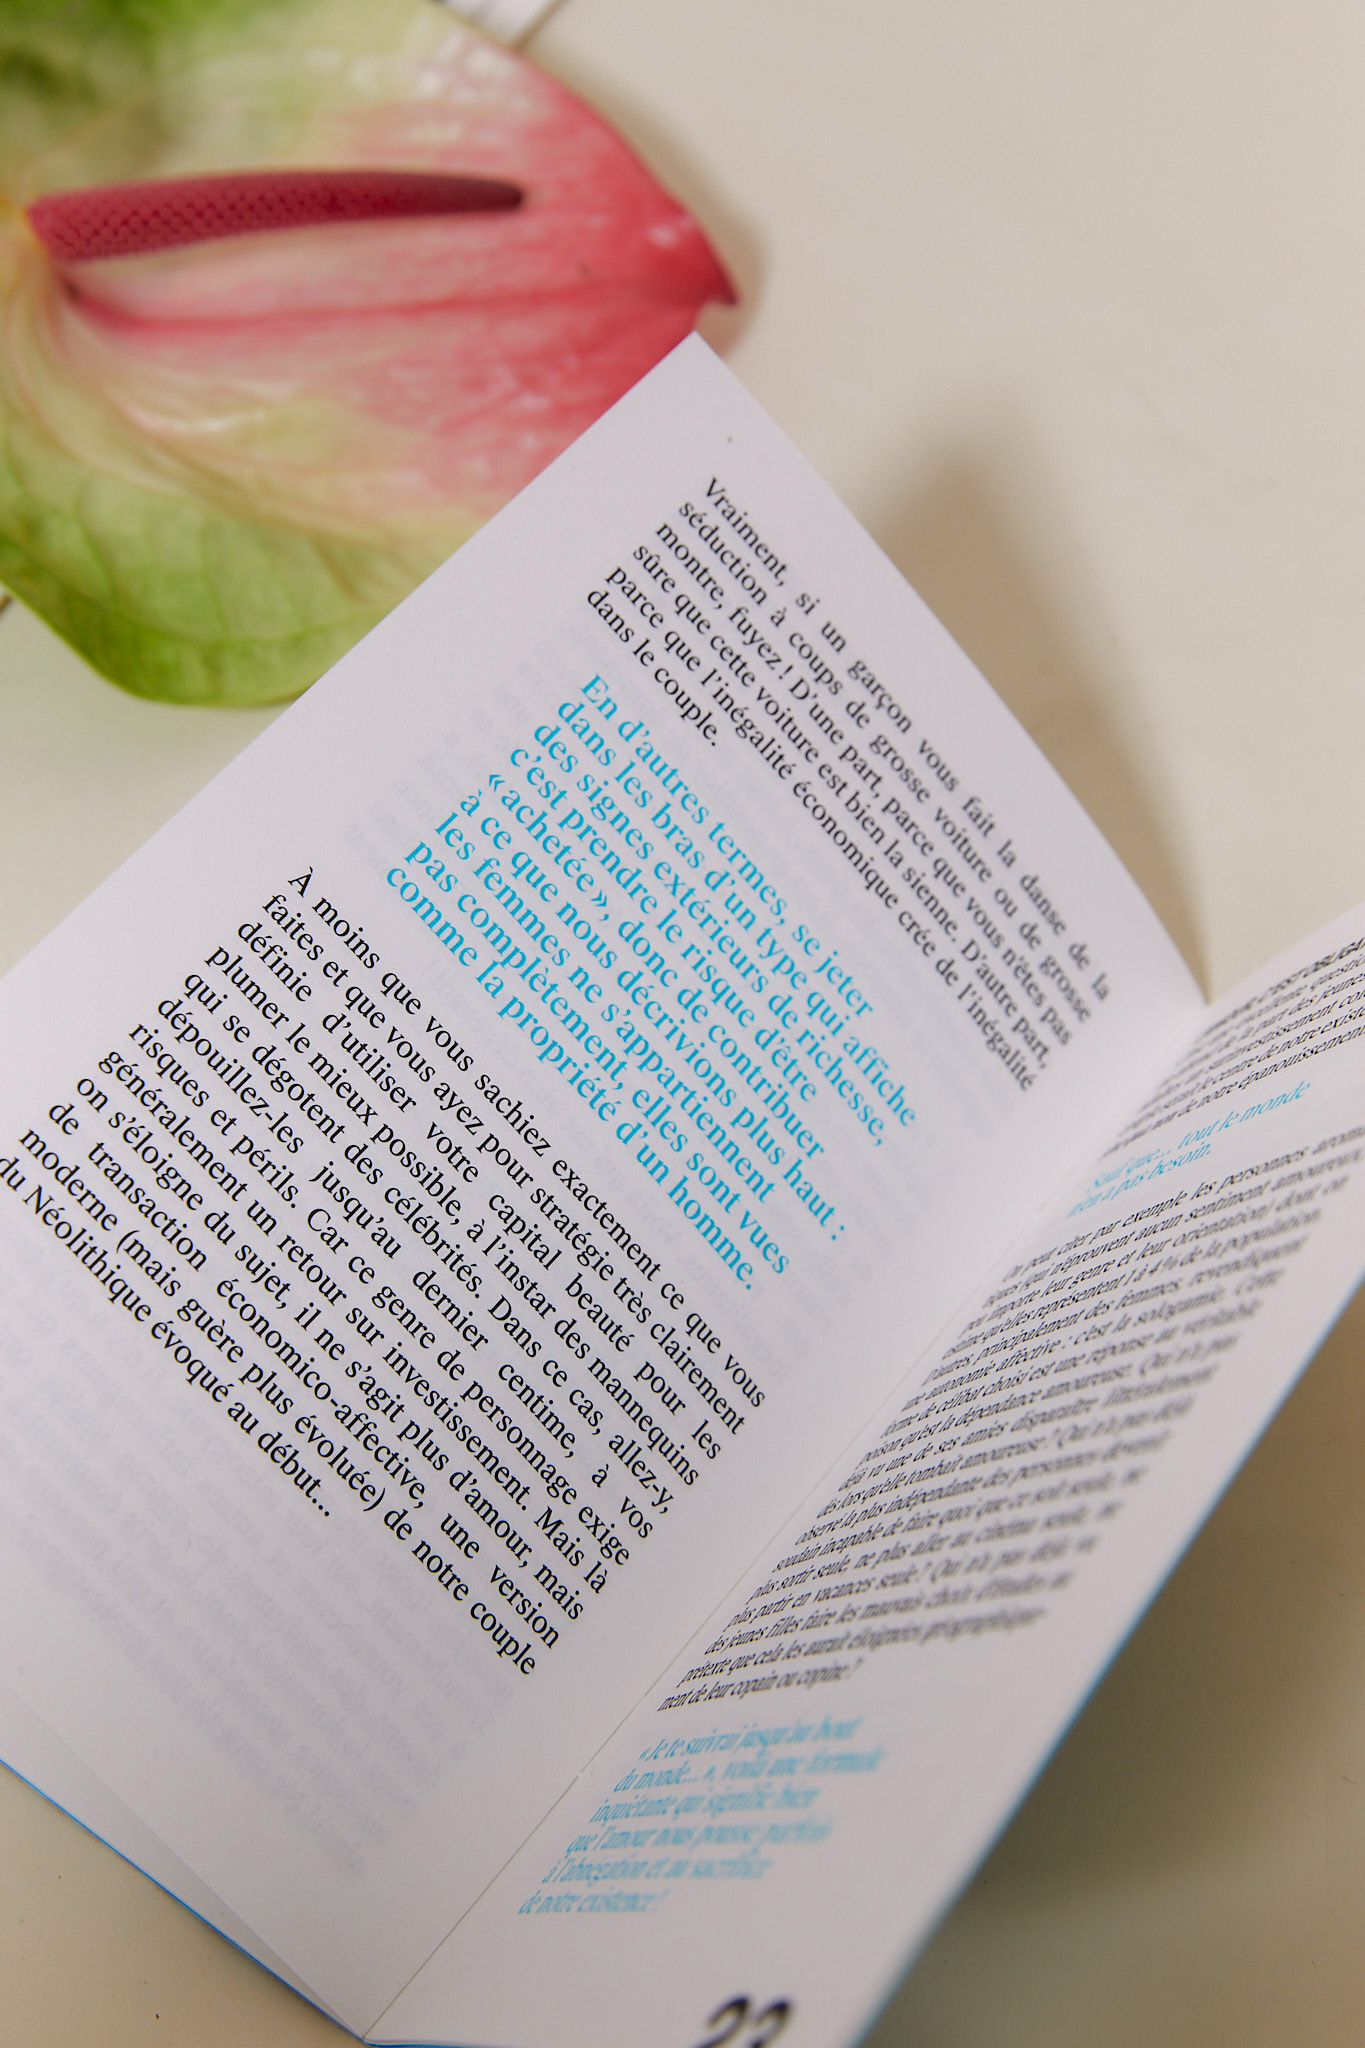 Vraiment, si un garçon vous fait la danse de la
séduction à coups de grosse voiture ou de grosse
montre, fuyez ! D'une part, parce que vous n'êtes pas
sûre que cette voiture est bien la sienne. D'autre part,
parce que l'inégalité économique crée de l'inégalité
dans le couple.
En d'autres termes, se jeter
dans les bras d'un type qui affiche
des signes extérieurs de richesse,
c'est prendre le risque d'être
« achetée », donc de contribuer
à ce que nous décrivions plus haut :
les femmes ne s'appartiennent
pas complètement, elles sont vues
comme la propriété d'un homme.
À moins que vous sachiez exactement ce que vous
faites et que vous ayez pour stratégie très clairement
définie d'utiliser votre capital beauté pour les
plumer le mieux possible, à l'instar des mannequins
qui se dégotent des célébrités. Dans ce cas, allez-y,
dépouillez-les jusqu'au dernier centime, à vos
risques et périls. Car ce genre de personnage exige
généralement un retour sur investissement. Mais là
on s'éloigne du sujet, il ne s'agit plus d'amour, mais
de transaction économico-affective, une version
moderne (mais guère plus évoluée) de notre couple
du Néolithique évoqué au début...
C'EST OBLIGA
question
la part des jeunes
surinvestissement
le centre de notre existe
de notre épanouissement
Sauf que... tout le monde
n'en a pas besoin.
On peut citer par exemple les personnes arom
(qui n'éprouvent aucun sentiment amoureux,
peu importe leur genre et leur orientation) dont on
estime qu'elles représentent 1 à 4 % de la population.
D'autres, principalement des femmes, revendiquent
une autonomie affective : c'est la sologamie. Cette
forme de célibat choisi est une réponse au véritable
poison qu'est la dépendance amoureuse. Qui n'a pas
déjà vu une de ses amies disparaître littéralement
dès lors qu'elle tombait amoureuse ? Qui n'a pas déjà
observé la plus indépendante des personnes devenir
soudain incapable de faire quoi que ce soit seule, ne
plus sortir seule, ne plus aller au cinéma seule, ne
plus partir en vacances seule ? Qui n'a pas déjà vu
des jeunes filles faire les mauvais choix d'études au
prétexte que cela les aurait éloignées géographique-
ment de leur copain ou copine ?
« Je te suivrai jusqu'au bout
du monde... », voilà une formule
inquiétante qui signifie bien
que l'amour nous pousse parfois
à l'abnégation et au sacrifice
de notre existence !
23